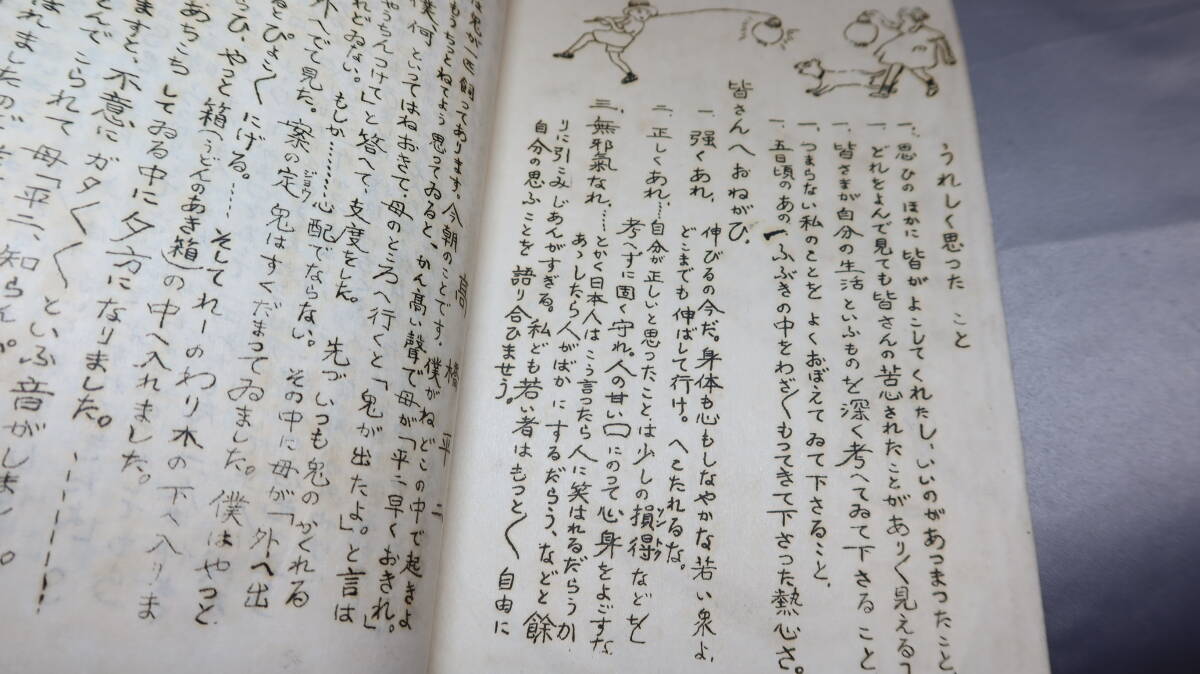 うれしく思った こと
一、思ひのほかに 皆がよこしてくれたし、いいのがあつまつたこと、
一、どれをよんで見ても皆さんの苦心されたことがあり〱見える
一、皆さまが自分の生活といふものを深く考へてゐて下さること
一、つまらない私のことを よくおぼえてゐて下さること、
一、五日頃のあの、ふぶきの中をわざ〱もってきて下さった熱心さ。
皆さんへおねがひ、
一、强くあれ、 伸びるの今だ。身体も心もしなやかな若い泉よ、
どこまでも伸ばして行け。へこたれるな。
二、正しくあれ、……自分が正しいと思ったことは少しの損得ソントクなどを
考へずに固く守れ。人の甘い口にのって心身をよごすな
三、無邪氣なれ、……とかく日本人はこう言ったら人に笑はれるだらうか
あゝしたら人がばかにするだらう、などと餘
りに引こみじあんがすぎる。私ども若い者はもっと〱自由に
自分の思ふことを語り合ひませう。
高橋平二
は兎が一匹飼ってあります。今朝のことです。僕がねどこの中で起きよ
もうちっとねてよう思ってゐると、かん高い聲で母が「平二早くおきれ。」
僕、何といってはねおきて、母のところへ行くと「兎が出たよ。」と言は
やっちんつけて」と答へて、支度をした。先づいつも兎のかくれる
れどゐない。もしか………心配でならない。その中に母が「外へ出
外へでて見た。案の定ジョウ兎はすくだまってゐました。僕はやっと
とぴょこ〱にげる。……そしてれーのわり木の下へ入りま
らひ、やっと箱(うどんのあき箱)の中へ入れました。
あちこちしてゐる中に夕方になりました。
ますと、不意にガタ〱〱といふ音がしま
とんでこられて母「平二、知らん